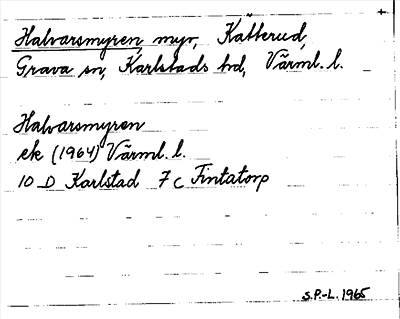 Halvarsmyren myr, Kätterud,
Grava sn, Karlstads hd, Värml. l.
Halvarsmyren
ek (1964) Värml. l.
10 D Karlstad 7 c Fintatorp
S.P.-L. 1965